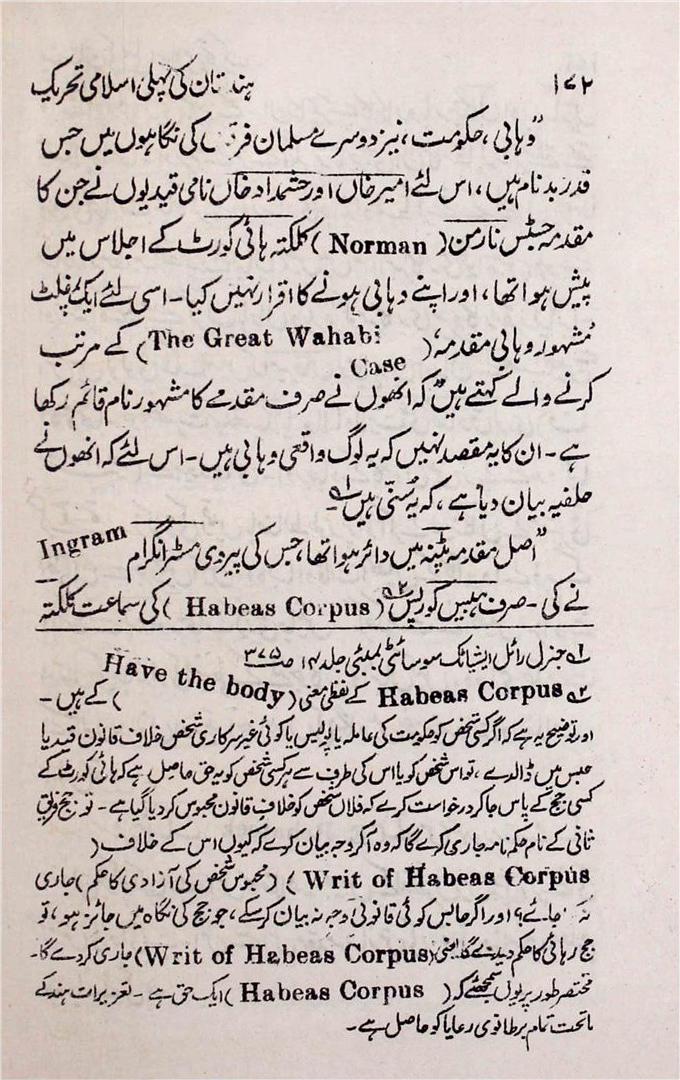 ۱۷۲ ہندستان کی پہلی اسلامی تحریک
"وہابی، حکومت، نیز دوسرے مسلمان فرقوں کی نگاہوں میں جس
قدر بدنام ہیں، اس لئے امیرخاں اور حشمداد خاں نامی قیدیوں نے جن کا
مقدمہ جسٹس نارمن (Norman) کلکتہ ہائی کورٹ کے اجلاس میں
پیش ہوا تھا، اور اپنے وہابی ہونے کا اقرار نہیں کیا۔ اسی لئے ایک پمفلٹ
'مشہور وہابی مقدمہ' (The Great Wahabi Case) کے مرتب
کرنے والے کہتے ہیں کہ انھوں نے صرف مقدمے کا مشہور نام قائم رکھا
ہے۔ ان کا یہ مقصد نہیں کہ یہ لوگ واقعی وہابی ہیں۔ اس لئے کہ انھوں نے
حلفیہ بیان دیا ہے، کہ یہ سُنّی ہیں۔ ؎۱
"اصل مقدمہ پٹنہ میں دائر ہوا تھا، جس کی پیروی مسٹر انگرام Ingram
نے کی۔ صرف ہیبیس کورپس ؎۲ (Habeas Corpus) کی سماعت کلکتہ
؎۱ جنرل رائل ایشیاٹک سوسائٹی بمبئی جلد ۱۴ ص ۳۷۵
؎۲ Habeas Corpus کے لفظی معنی (Have the body) کے ہیں۔
اور توضیح یہ ہے کہ اگر کسی شخص کو حکومت کی عاملہ یا پولیس یا کوئی غیر سرکاری شخص خلاف قانون قید یا
حبس میں ڈالدے، تو اس شخص کو یا اس کی طرف سے ہر کسی شخص کو یہ حق حاصل ہے کہ ہائی کورٹ کے
کسی جج کے پاس جا کر درخواست کرے کہ فلاں شخص کو خلاف قانون محبوس کر دیا گیا ہے۔ تو جج فریق
ثانی کے نام حکمنامہ جاری کرے گا کہ وہ آکر وجہ بیان کرے کہ کیوں اس کے خلاف (
Writ of Habeas Corpus) (محبوس شخص کی آزادی کا حکم) جاری
نہ کیا جائے؟ اور اگر حابس کوئی قانونی وجہ نہ بیان کر سکے، جو جج کی نگاہ میں جائز ہو، تو
جج رہائی کا حکم دیدے گا۔ یعنی (Writ of Habeas Corpus) جاری کر دے گا۔
مختصر طور پر یوں سمجھئے کہ (Habeas Corpus) ایک حق ہے۔ تعزیرات ہند کے
ماتحت تمام برطانوی رعایا کو حاصل ہے۔